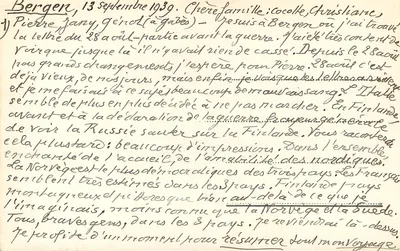 Bergen, 13 septembre 1939. Chère famille: Cocotte, Christiane,
Pierre, Jany, – Je suis à Bergen où j'ai trouvé
la lettre du 28 août – partie avant la guerre. J'ai été très content de
voir que jusque là il n'y avait rien de cassé. Depuis le 28 août
pas grands changements j'espère pour Pierre. 28 août c'est
déjà vieux, de nos jours, mais enfin je vois que les lettres arrivent
et je me faisais à ce sujet beaucoup de mauvais sang. L'Italie
semble de plus en plus décidée à ne pas marcher. En Finlande,
avant et à la déclaration de la guerre
de voir la Russie sauter sur la Finlande. Vous raconterai
cela plus tard: beaucoup d'impressions. Dans l'ensemble
enchanté de l'accueil, de l'amabilité des nordiques.
La Norvège est le plus démocratique des trois pays. Les français
semblent très estimés dans les 3 pays. Finlande pays
montagneux et pittoresque bien au-delà de ce que je
l'imaginais, moins connu que la Norvège et la Suède.
Tous, braves gens, dans les 3 pays. Je reviendrai là-dessus.
Je profite d'un moment pour résumer tout mon voyage.